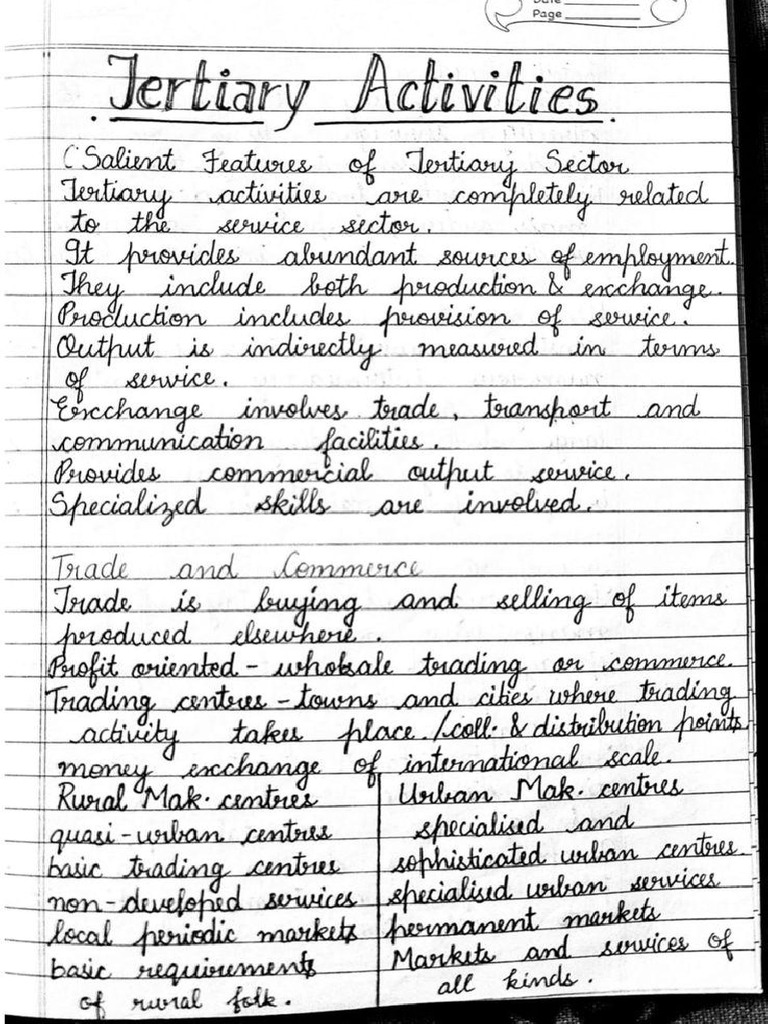 Date
Page
Tertiary Activities.
(Salient Features of Tertiary Sector
Tertiary activities are completely related
to the service sector.
It provides abundant sources of employment.
They include both production & exchange.
Production includes provision of service.
Output is indirectly measured in terms
of service.
Exchange involves trade, transport and
communication facilities.
Provides commercial output service.
Specialized skills are involved.
Trade and Commerce
Trade is buying and selling of items
produced elsewhere.
Profit oriented - wholesale trading or commerce.
Trading centres - towns and cities where trading
activity takes place /coll. & distribution points
money exchange of international scale.
Rural Mak. centres
quasi-urban centres
basic trading centres
non-developed services
local periodic markets
basic requirements
of rural folk.
Urban Mak. centres
specialised and
sophisticated urban centres.
specialised urban services
permanent markets
Markets and services of
all kinds.